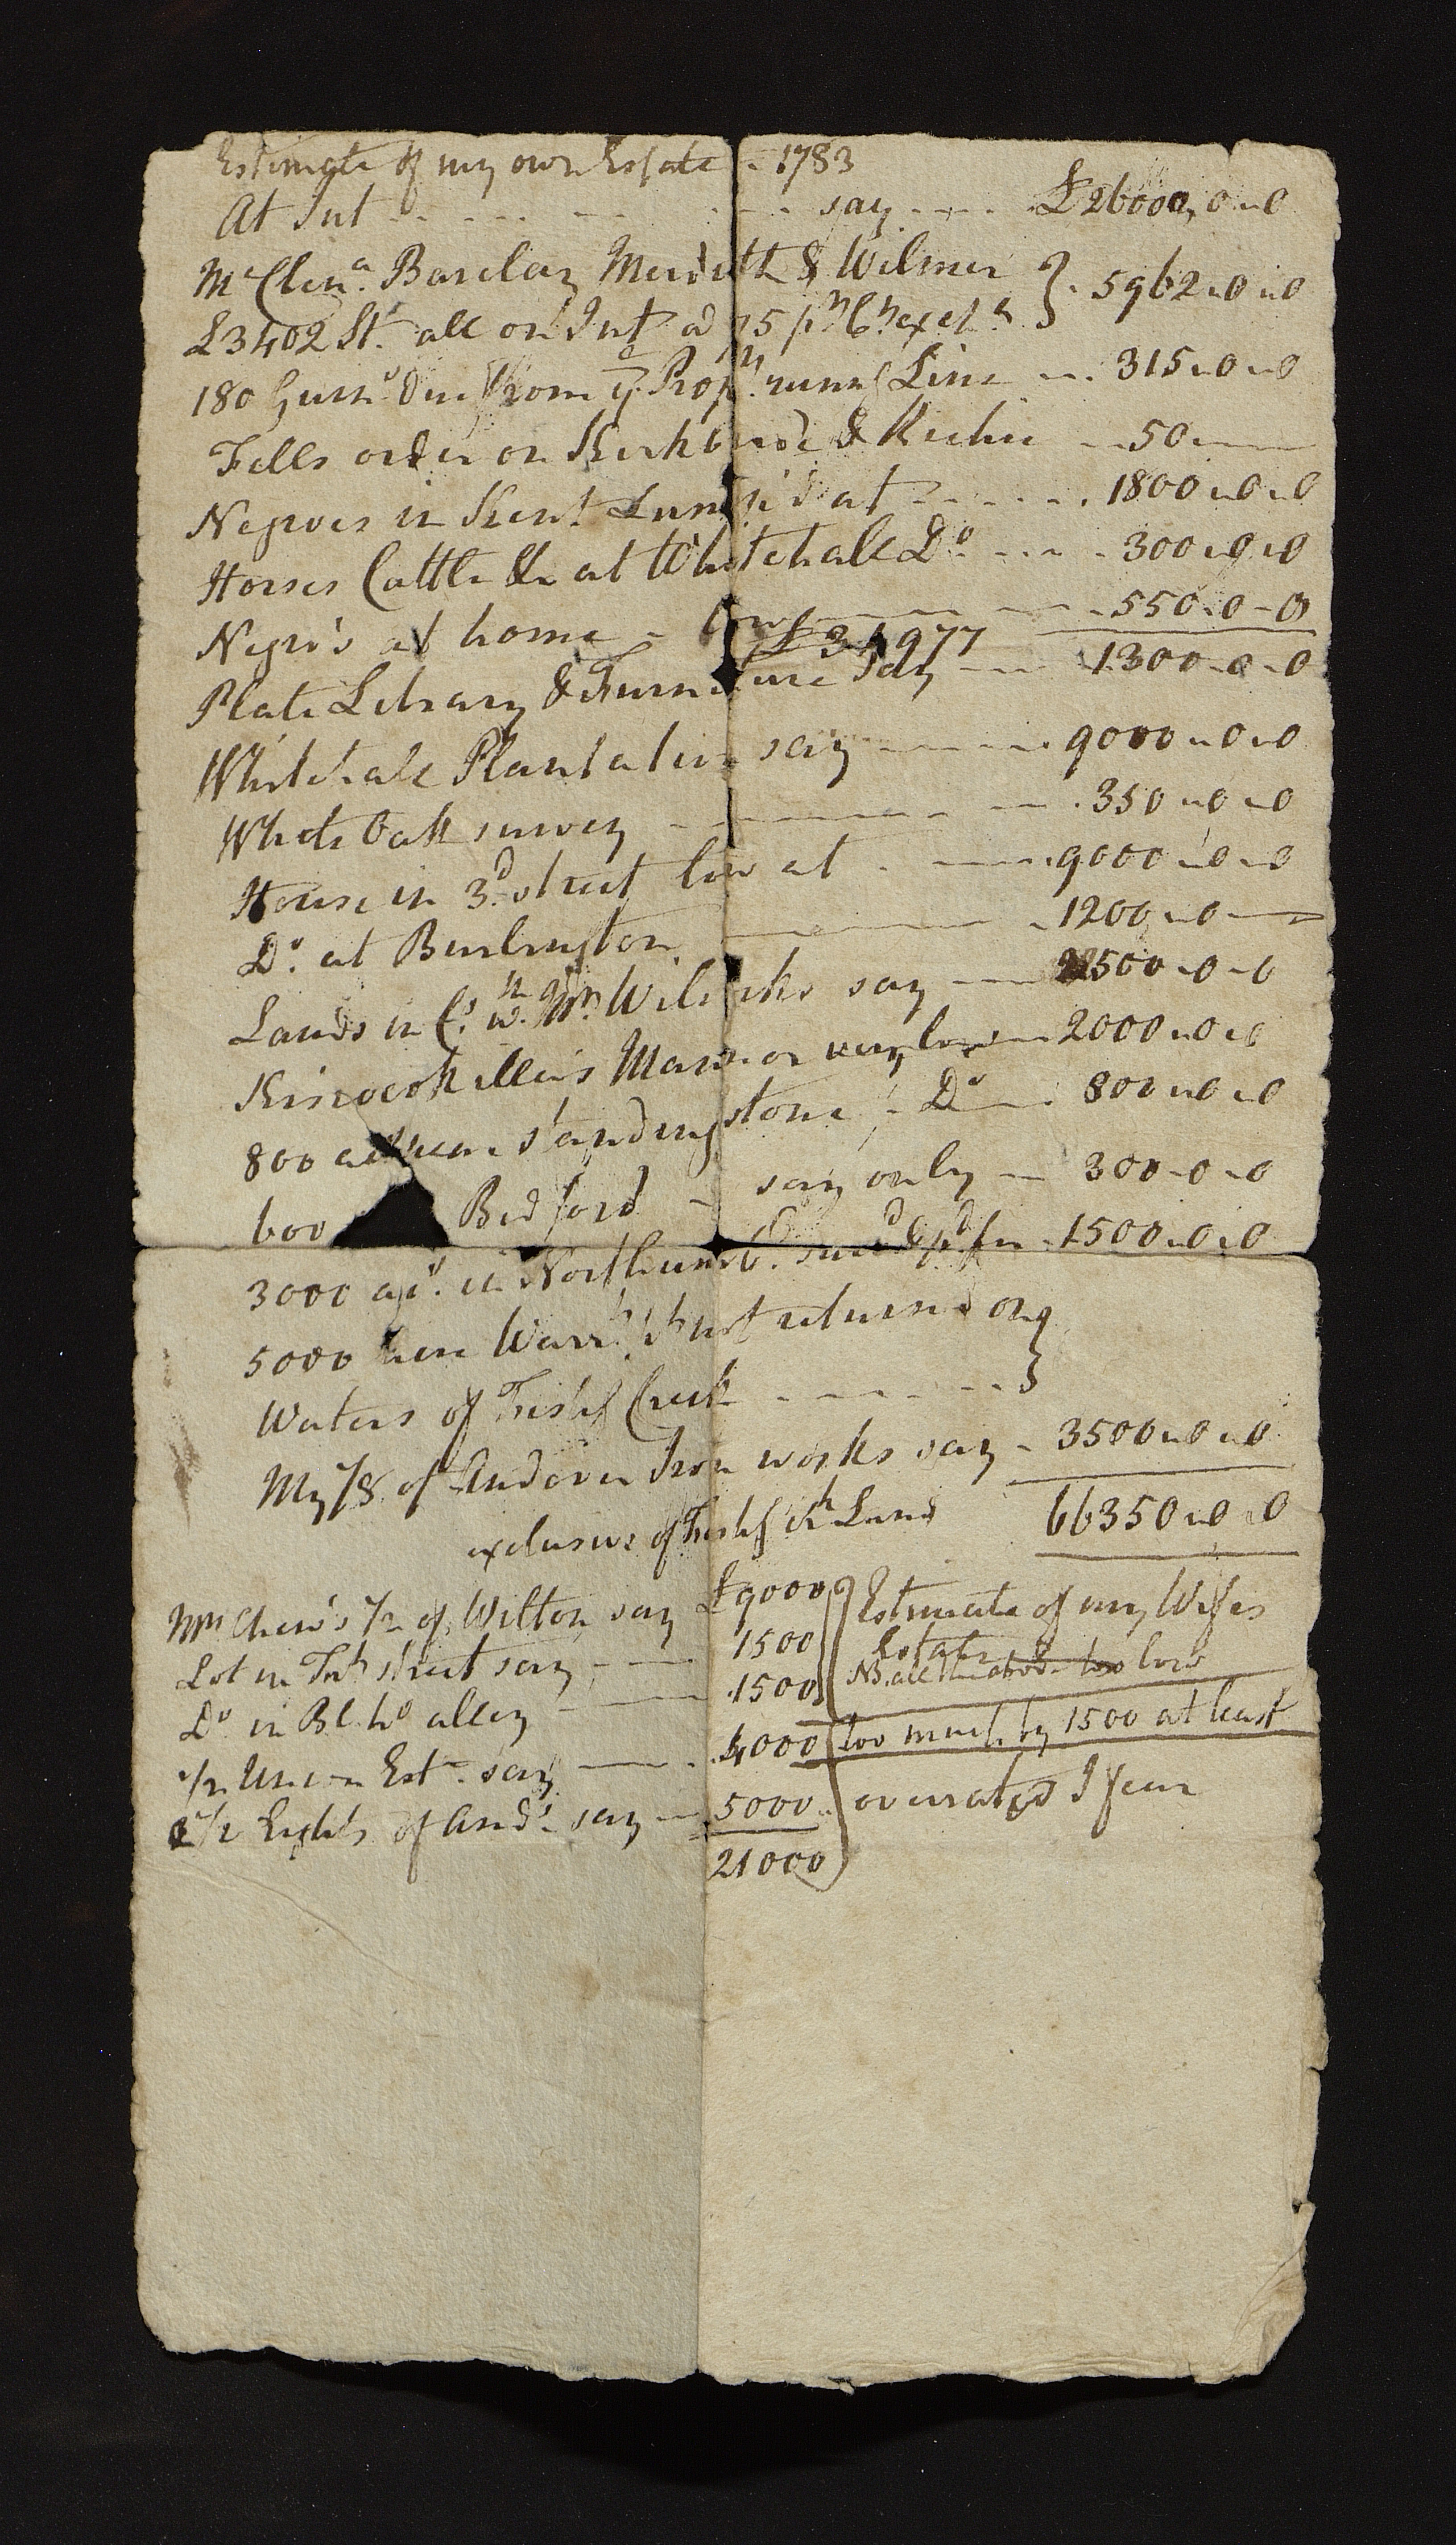 Estimate of my own Estate - 1783
At Int - - - - say - - - £26000,,0,,0
McClena. Barclay Meredith & Wilmer } 5962,,0,,0
£3402 St. all on Int a 75 pr Ct. exch
180 Guns. due from ye Propr. runng Line - 315,,0,,0
Fells order on Kirkbride & Richie - 50
Negroes in Kent Lump'd at - - - 1800,,0,,0
Horses Cattle &c at Whitehall Do. - - 300,,0,,0
Negro's at home - low - 550,,0-0
£34977
Plate Library & Furniture say - 1300-0-0
Whitehall Plantation say - 9000,,0,,0
White Oak survey - 350,,0,,0
House in 3d. street low at - 9000,,0,,0
Do. at Burlington - 1200,,0
Lands in Co. wth. Mr. Wilcocks say - 2500-0-0
Kiscocohiller's Mannor very low - 2000,,0,,0
800 near Standing stone - Do - 800,,0,,0
600 Bedford - say only - 300-0-0
3000 as. in Northumbd. surd & pd for - 1500,,0,,0
5000 here Warrts. not returned on }
Waters of Fishg Creek - - - - }
My 1/8 of Andover Iron works say - 3500,,0,,0
exclusive of Fishg Ck Land 66350,,0,,0
Mrs Chew's 1/2 of Wilton say £9000 } Estimate of my Wifes
Lot in Frt street say - 1500 Estate
Do in Bl. ho alley - 1500 NB. all the above too low
1/2 Union Est. say - 4000 too much by 1500 at least
1/2 Eights of Andr. say - 5000 overrated I fear
21000